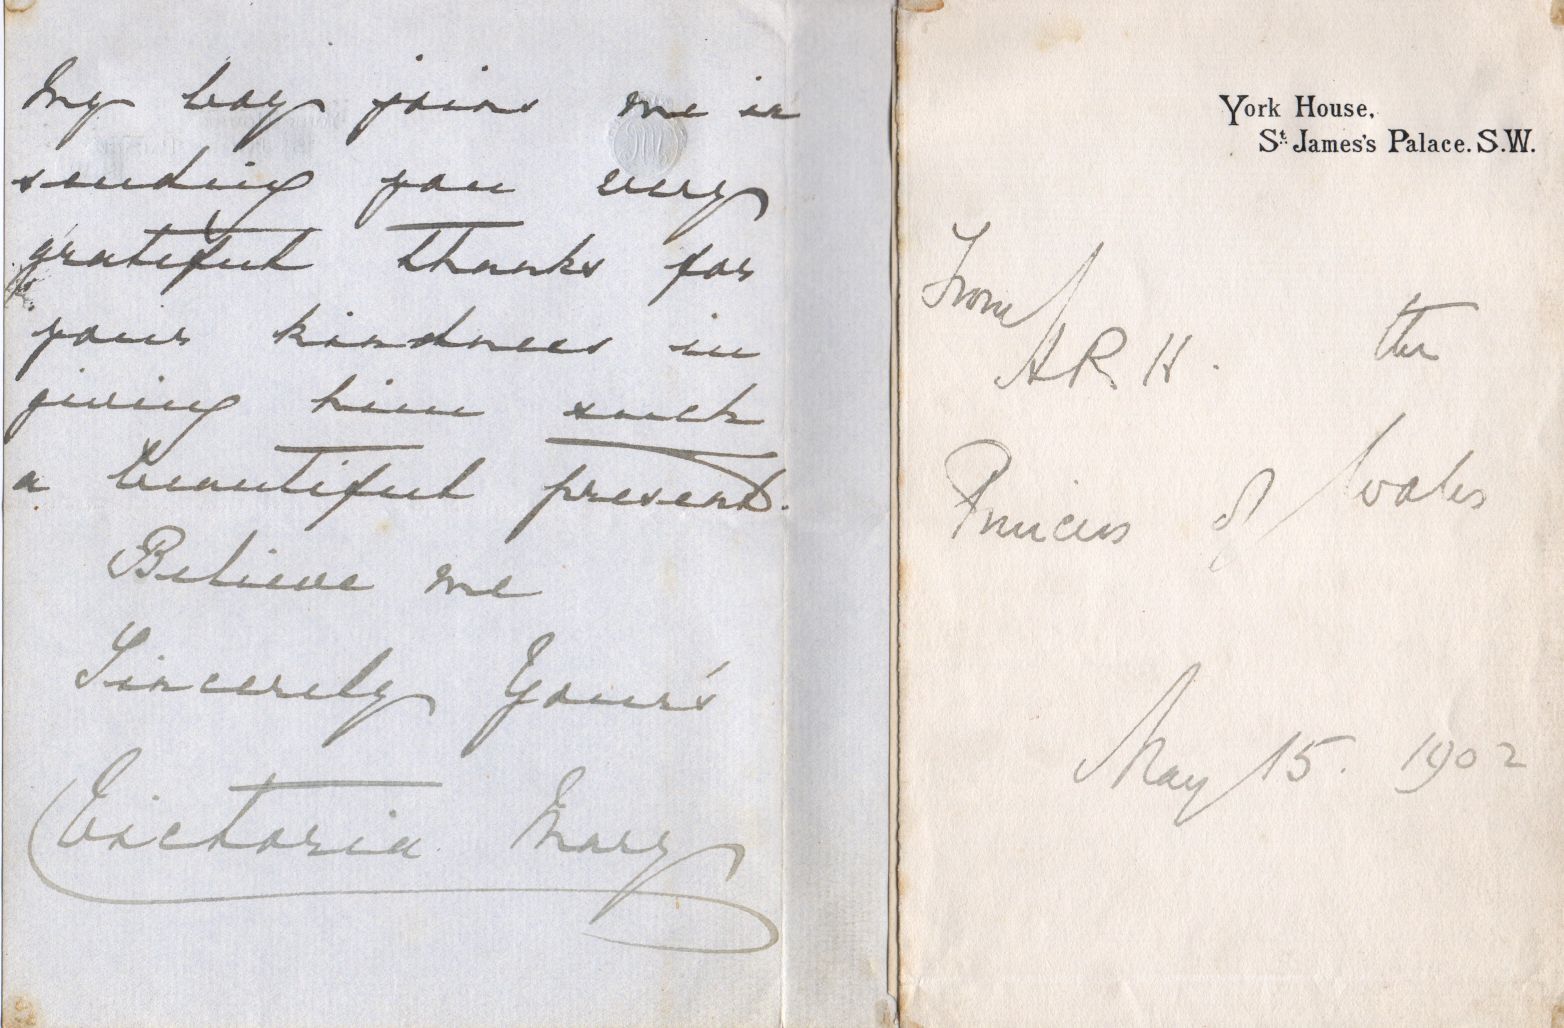 My boy joins me in
sending you very
grateful thanks for
your kindness in
giving him such
a beautiful present.
Believe me
Sincerely Your's
Victoria Mary
York House,
St. James's Palace. S.W.
From
H.R.H. the
Princess of Wales
May 15. 1902